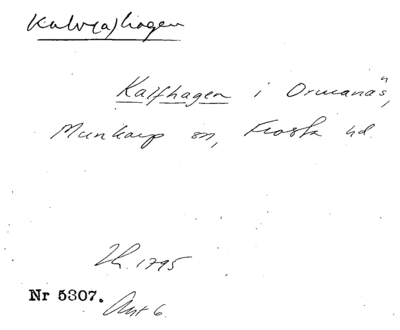 Kalv(a)hagen
Kalfhagen i Ormanäs,
Munkarp sn, Frosta hd.
Lh. 1795
Nr 5307.
Akt 6